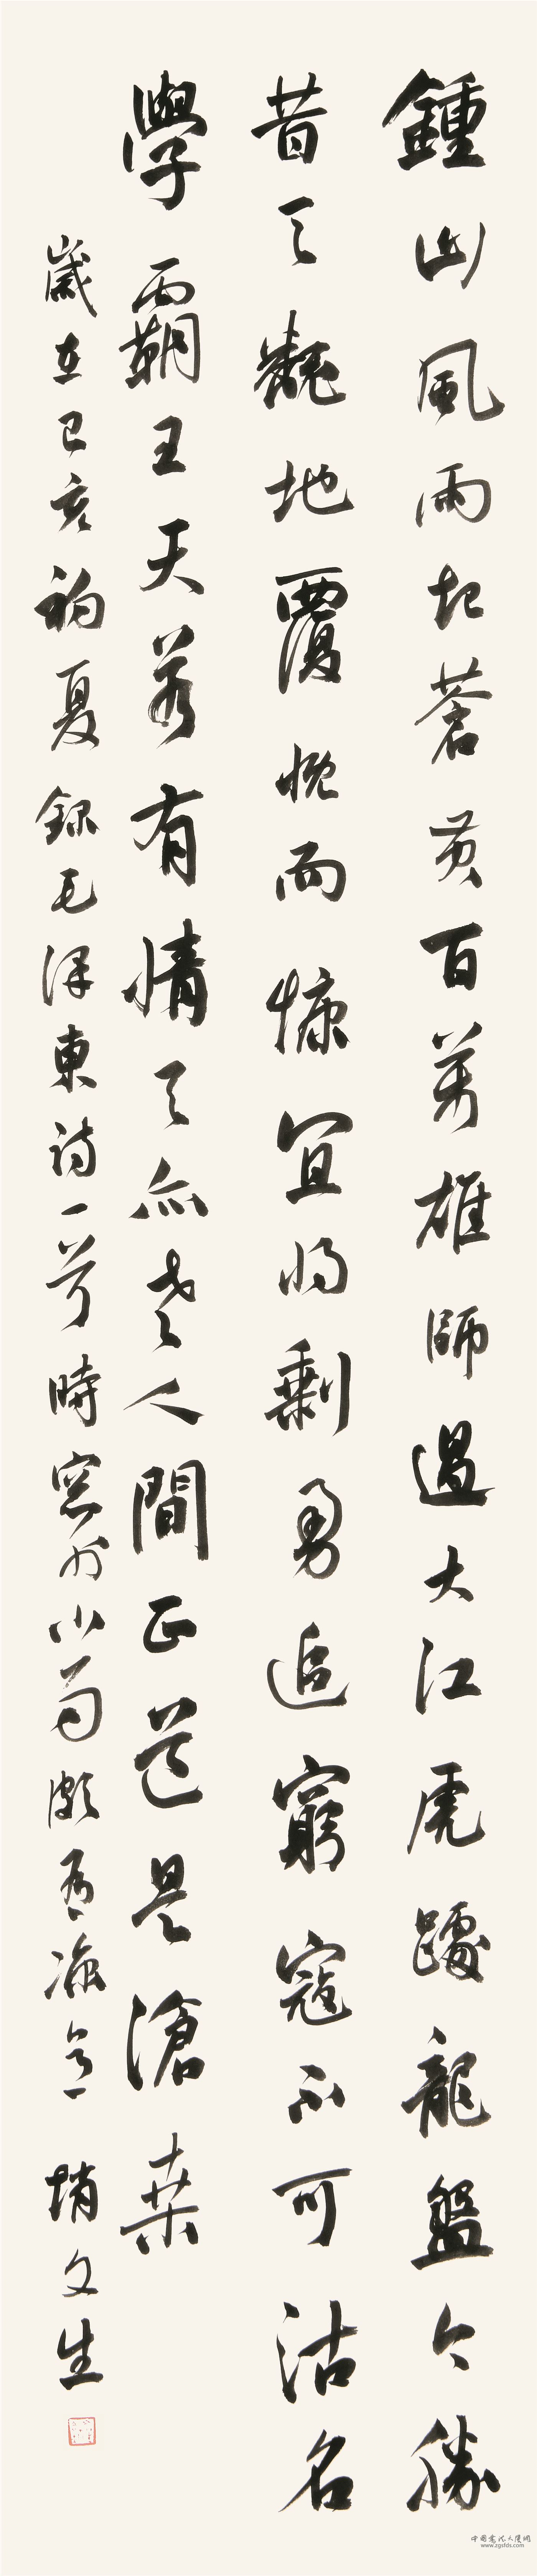 鍾山風雨起蒼黃百萬雄師過大江虎踞龍盤今勝
昔天翻地覆慨而慷宜將剩勇追窮寇不可沽名
學霸王天若有情天亦老人間正道是滄桑
歲在己亥初夏錄毛澤東詩一首時窓外小雨頗有涼意 文生
中国书法大厦网
www.zgsfds.com